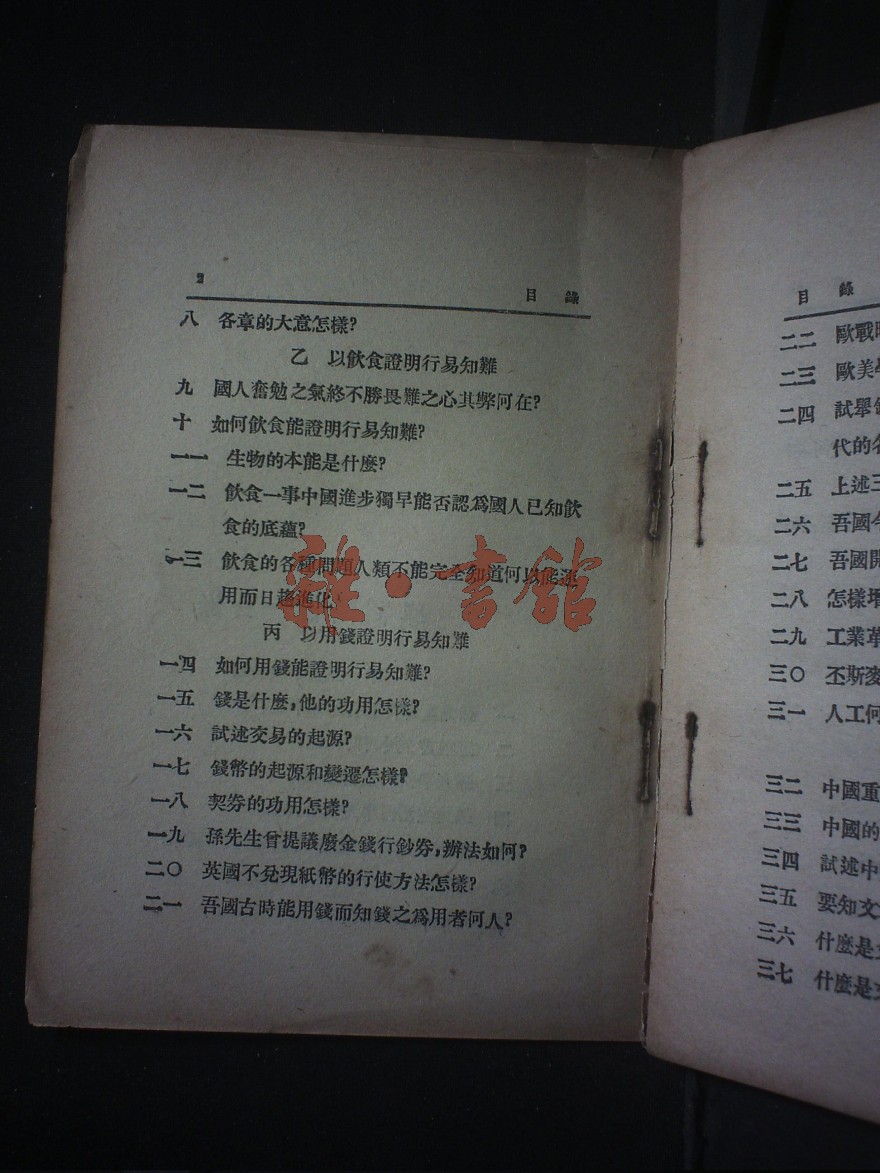 2
目錄
八 各章的大意怎樣?
乙 以飲食證明行易知難
九 國人奮勉之氣終不勝畏難之心其弊何在?
十 如何飲食能證明行易知難?
一一 生物的本能是什麼?
一二 飲食一事中國進步獨早能否認爲國人已知飲
食的底蘊?
一三 飲食的各種問題人類不能完全知道何以能運
用而日趨進化?
丙 以用錢證明行易知難
一四 如何用錢能證明行易知難?
一五 錢是什麼,他的功用怎樣?
一六 試述交易的起源?
一七 錢幣的起源和變遷怎樣?
一八 契券的功用怎樣?
一九 孫先生曾提議廢金錢行鈔券,辦法如何?
二〇 英國不兌現紙幣的行使方法怎樣?
二一 吾國古時能用錢而知錢之爲用者何人?
雜·書館
目錄
二二 歐戰
二三 歐美
二四 試舉
代的名
二五 上述三
二六 吾國今
二七 吾國開
二八 怎樣增
二九 工業革
三〇 丕斯麥
三一 人工何
三二 中國重
三三 中國的
三四 試述中
三五 要知文
三六 什麼是
三七 什麼是